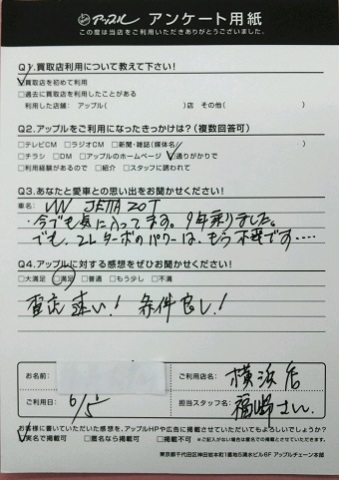 アップル アンケート用紙
この度は当店をご利用いただきありがとうございました。
Q1.買取店利用について教えて下さい!
買取店を初めて利用
□過去に買取店を利用したことがある
利用した店舗: アップル( )店 その他( )
Q2.アップルをご利用になったきっかけは?(複数回答可)
□テレビCM □ラジオCM □新聞・雑誌(媒体名 )
□チラシ □DM □アップルのホームページ 通りがかりで
□利用経験があるので □紹介 □スタッフに誘われて
Q3.あなたと愛車との思い出をお聞かせください!
車名: VW JETTA 2.0T
今でも気に入ってます。9年乗りました。
でも、2Lターボのパワーは、もう不要です‥‥
Q4.アップルに対する感想をぜひお聞かせください!
□大満足 □満足 □普通 □もう少し □不満
査定速い! 条件良し!
お名前:
ご利用店名: 横浜店
ご利用日: 6/5
担当スタッフ名: 福崎さん
お客様に書いていただいた感想を、アップルHPや広告に掲載させていただいてもよろしいでしょうか?
実名で掲載可 □匿名なら掲載可 □掲載不可 ※ご記入がない場合は匿名での掲載とさせていただきます。
東京都千代田区神田松本町1番地6清水ビル6F アップルチェーン本部